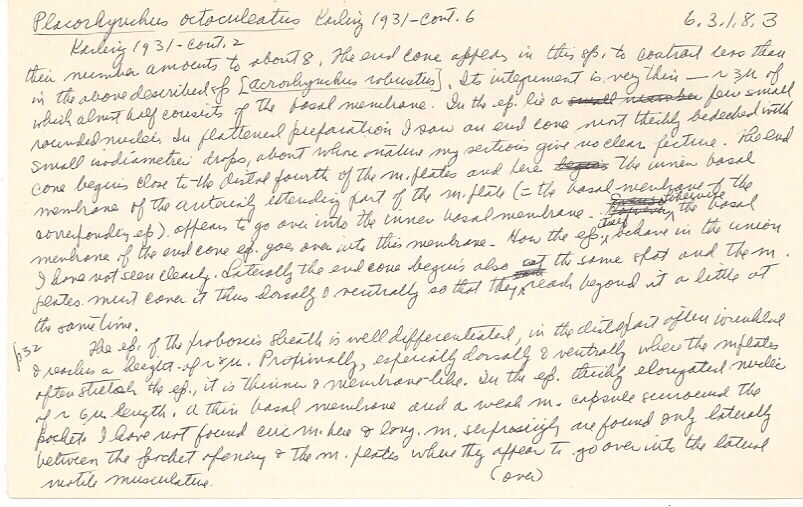 Placorhynchus octaculeatus Karling 1931-cont. 6 6.3.1.8.3
Karling 1931-cont. 2
their number amounts to about 8. The end cone appears in this sp. to contract less than
in the above described sp [acrorhynchus robustus]. Its integument is very thin — r 3μ of
which almost half consists of the basal membrane. In the ep. lie a small number few small
rounded nuclei. In flattened preparation I saw an end cone most thickly bedecked with
small isodiametric drops, about whose nature my sections give no clear picture. The end
cone begins close to the distal fourth of the m. plates and here begins the inner basal
membrane of the anteriorly extending part of the m. plate (= the basal membrane of the
corresponding ep). appears to go over into the inner basal membrane. However, otherwise the basal
membrane of the end cone ep. goes over into this membrane. How the ep. itself behave in the union
I have not seen clearly. Laterally the end cone begins also at the same spot and the m.
plates must cover it thus dorsally & ventrally so that they reach beyond it a little at
the same time.
p32 The ep. of the proboscis sheath is well differentiated, in the distal part often wrinkled
& reaches a height of r 8μ. Proximally, especially dorsally & ventrally where the m plates
often stretch the ep., it is thinner & membrane-like. In the ep. thickly elongated nuclei
of r 6μ length. A thin basal membrane and a weak m. capsule surround the
pocket. I have not found circ m. here & long. m. surprisingly are found only laterally
between the pocket opening & the m. plates where they appear to go over into the lateral
motile musculature. (over)